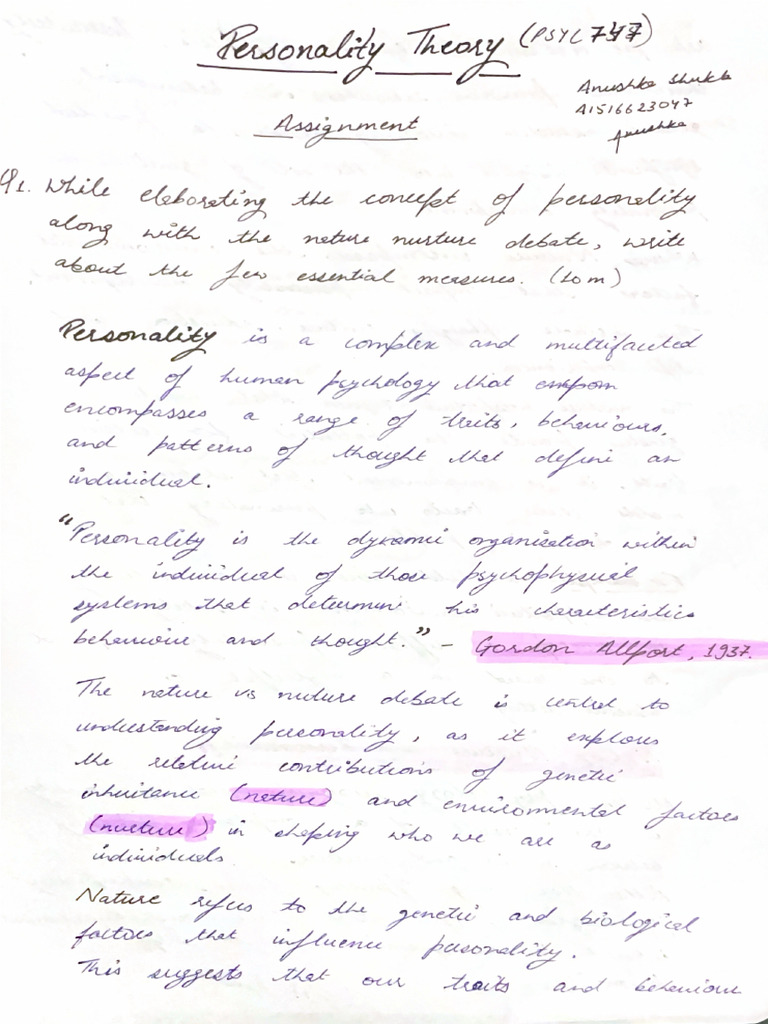 Personality Theory (PSYC747)
Anushka Shukla
A1516623047
Anushka
Assignment
Q1. While elaborating the concept of personality
along with the nature nurture debate, write
about the few essential measures. (10m)
Personality is a complex and multifaceted
aspect of human psychology that empom
encompasses a range of traits, behaviours,
and patterns of thought that define an
individual.
"Personality is the dynamic organisation within
the individual of those psychophysical
systems that determine his characteristics
behaviour and thought." - Gordon Allport, 1937.
The nature vs nuture debate is central to
understanding personality, as it explores
the relative contributions of genetic
inheritance (nature) and environmental factors
(nurture) in shaping who we are as
individuals
Nature refers to the genetic and biological
factors that influence personality.
This suggests that our traits and behaviour